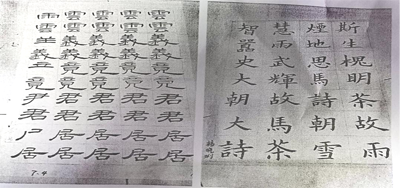 雨雲雲雲雲
雲雲雲雲雲
義義義義
義義義義義
竟竟竟竟竟
尹君君君君
君君君君君
尸居居居居
居居居居居
7.4
斯生槐明茶故雨
煙地思馬詩朝雪
慧雨武輝故馬茶
智囂史大朝大詩